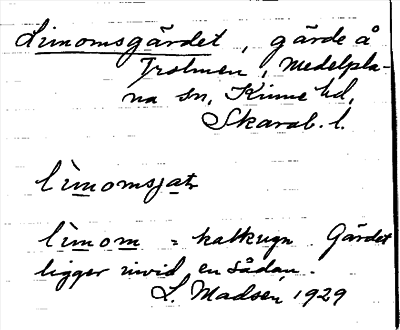 Limomsgärdet, gärde å
Trolmen, Medelpla-
na sn, Kinne hd,
Skarab. l.
limomsjatr
limom = kalkugn Gärdet
ligger invid en sådan.
L. Madsén 1929